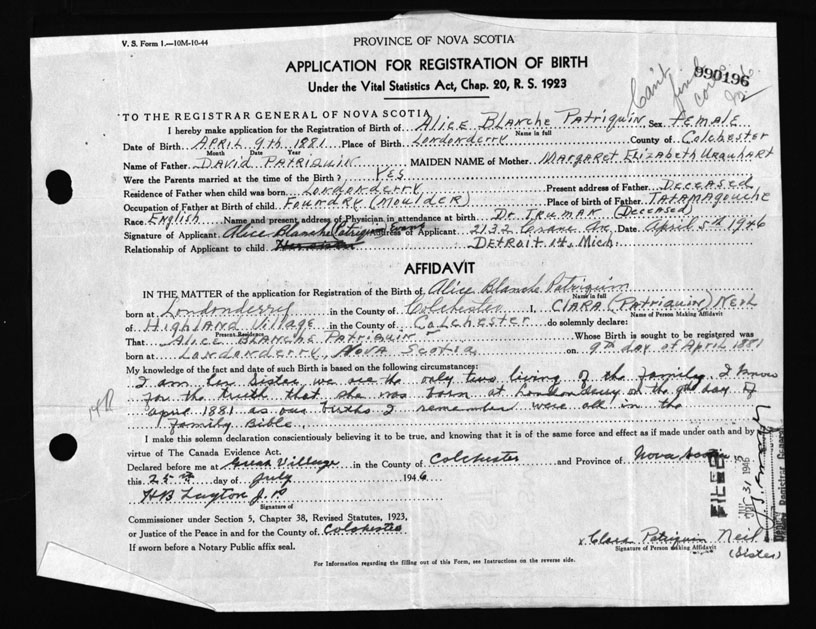 V. S. Form 1.—10M-10-44
PROVINCE OF NOVA SCOTIA
APPLICATION FOR REGISTRATION OF BIRTH
990196
Under the Vital Statistics Act, Chap. 20, R. S. 1923
Can't find
TO THE REGISTRAR GENERAL OF NOVA SCOTIA
I hereby make application for the Registration of Birth of Alice Blanche Patriquin Sex Female
Name in full
Date of Birth April 9th 1881 Place of Birth Londonderry County of Colchester
Month Date Year
Name of Father David Patriquin MAIDEN NAME of Mother Margaret Elizabeth Urquhart
Were the Parents married at the time of the Birth? Yes
Residence of Father when child was born Londonderry Present address of Father Deceased
Occupation of Father at Birth of child Foundry (Moulder) Place of birth of Father Tatamagouche
Race English Name and present address of Physician in attendance at birth Dr. Truman (Deceased)
Signature of Applicant Alice Blanche Patriquin Address of Applicant 2132 Date April 5th 1946
Relationship of Applicant to child Detroit 14, Mich
AFFIDAVIT
IN THE MATTER of the application for Registration of the Birth of Alice Blanche Patriquin
Name in full
born at Londonderry in the County of Colchester I, Clara (Patriquin) Neil
Name of Person Making Affidavit
of Highland Village in the County of Colchester do solemnly declare:
Present Residence
That Alice Blanche Patriquin Whose Birth is sought to be registered was
born at Londonderry, Nova Scotia on 9th day of April 1881
My knowledge of the fact and date of such Birth is based on the following circumstances:
I am her sister, we are the only two living of the family. I know
for the truth that she was born at Londonderry on the 9th day of
april 1881 as our births I remember were all in the
family Bible.
I make this solemn declaration conscientiously believing it to be true, and knowing that it is of the same force and effect as if made under oath and by
virtue of The Canada Evidence Act.
Declared before me at Great Village in the County of Colchester and Province of Nova Scotia
this 25th day of July 1946
HB Layton J. P
Signature of
Commissioner under Section 5, Chapter 38, Revised Statutes, 1923,
or Justice of the Peace in and for the County of Colchester
If sworn before a Notary Public affix seal.
x Clara Patriquin Neil
Signature of Person making Affidavit
(Sister)
For Information regarding the filling out of this Form, see Instructions on the reverse side.
FILED
31 1946
Deputy Registrar General